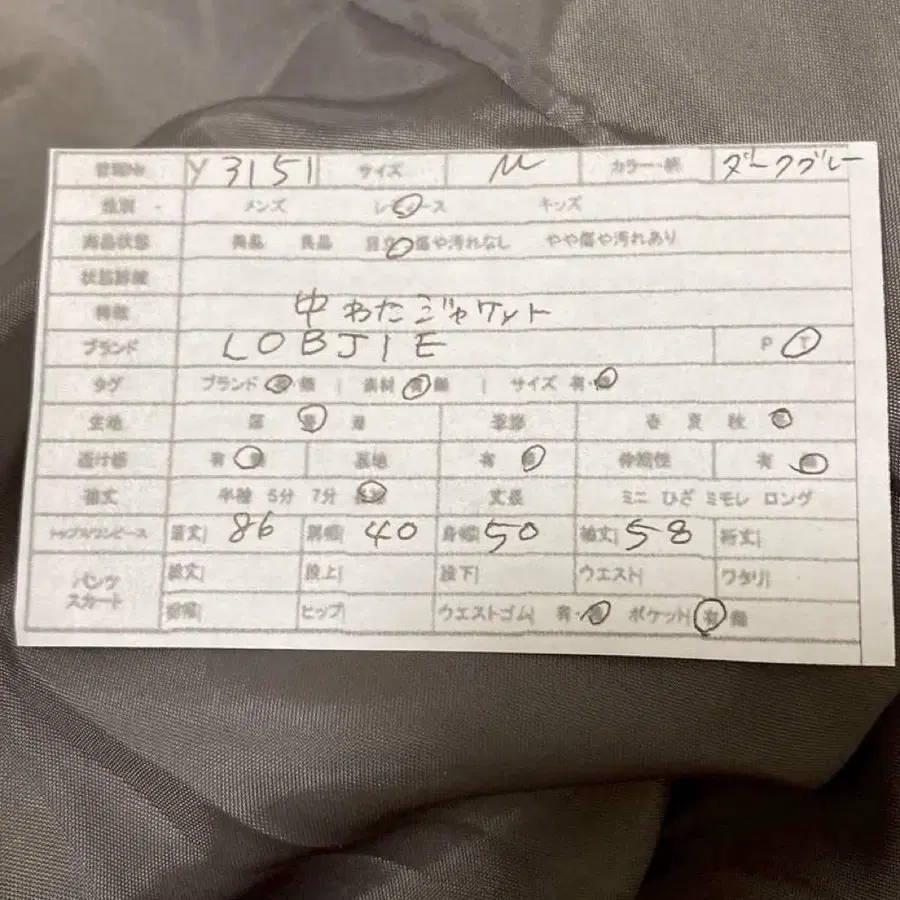 管理No Y3151 サイズ M カラー・柄 ダークグレー
性別 メンズ レディース キッズ
商品状態 美品 良品 目立つ傷や汚れなし やや傷や汚れあり
状態詳細
特徴 中わたジャケット
ブランド LOBJIE P T
タグ ブランド 有・無 | 素材 有・無 | サイズ 有・無
生地 薄 普 厚 季節 春 夏 秋 冬
透け感 有 無 裏地 有 無 伸縮性 有 無
袖丈 半袖 5分 7分 長袖 丈長 ミニ ひざ ミモレ ロング
トップス/ワンピース 着丈| 86 肩幅| 40 身幅| 50 袖丈| 58 裄丈|
パンツ スカート 総丈| 股上| 股下| ウエスト| ワタリ|
裾幅| ヒップ| ウエストゴム| 有・無 ポケット| 有 無